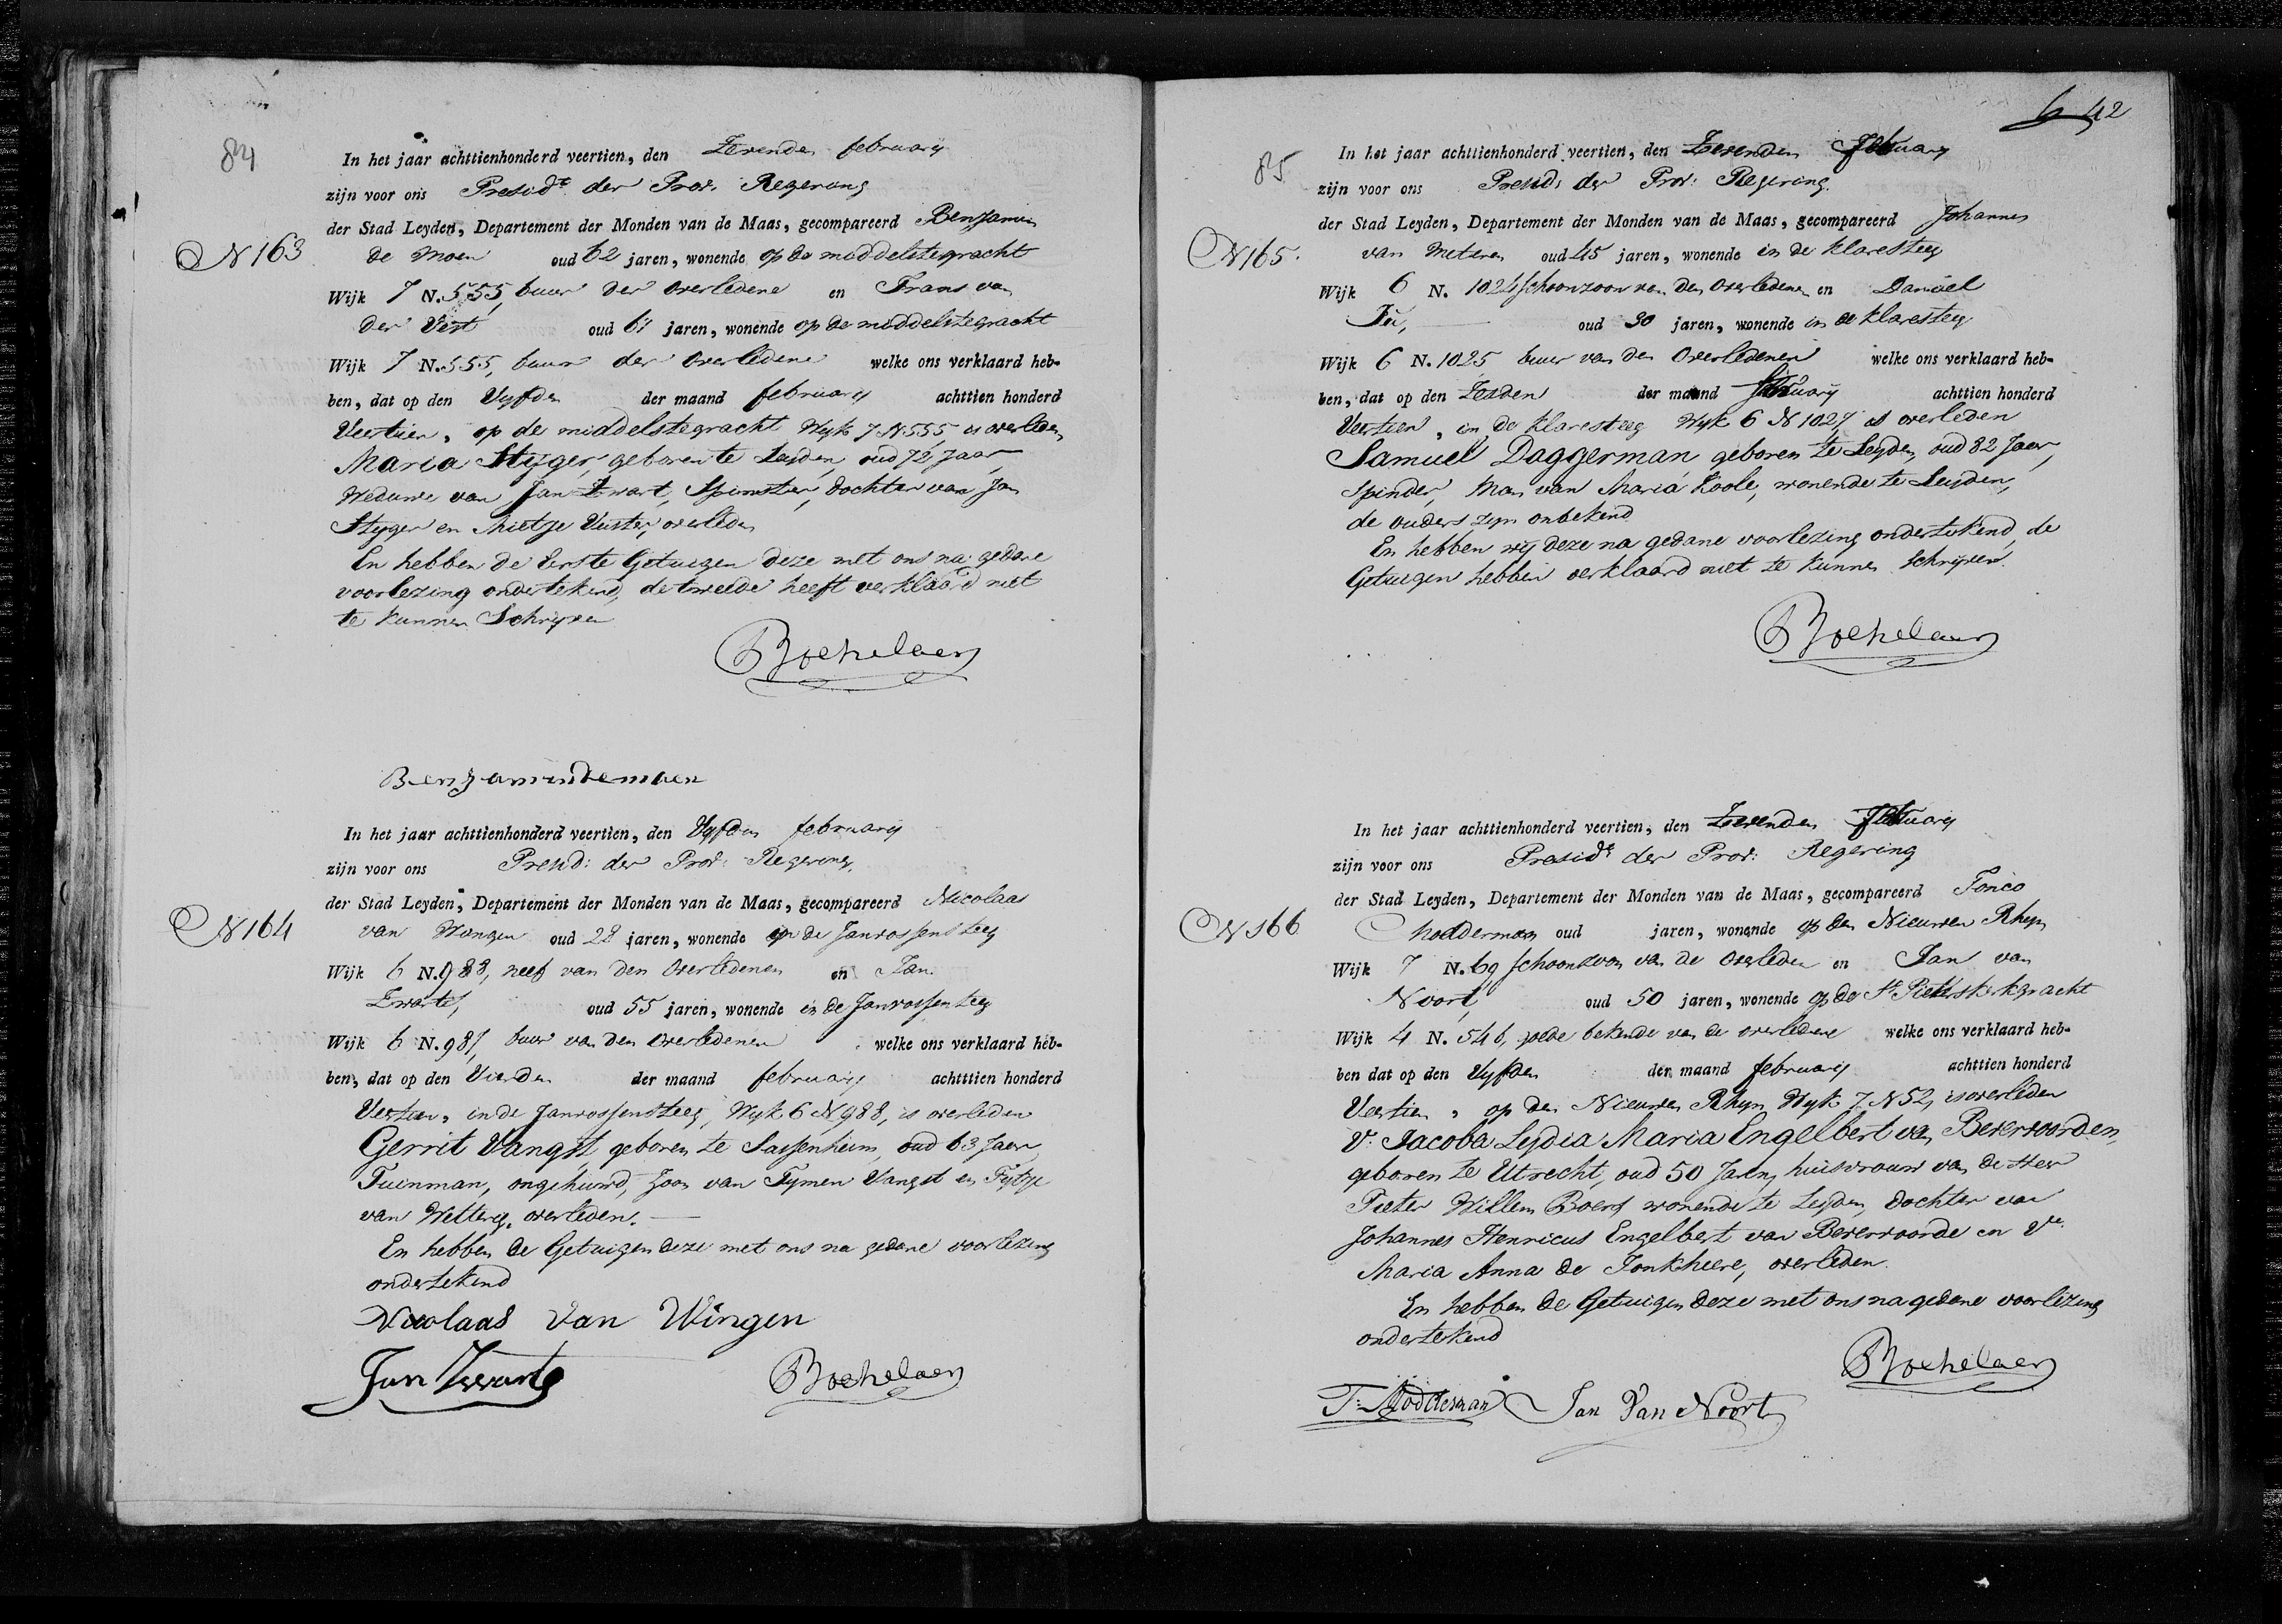 84
In het jaar achttienhonderd veertien, den Zevenden february
zijn voor ons Presidt. der Prov. Regering
der Stad Leyden, Departement der Monden van de Maas, gecompareerd Benjamin
N 163
de Moen oud 62 jaren, wonende op de middelstegracht
Wijk 7 N. 555, buur der overledene en Frans van
der Vest oud 61 jaren, wonende op de middelstegracht
Wijk 7 N. 555, buur der overledene welke ons verklaard heb-
ben, dat op den Vyfden der maand february achttien honderd
Veertien, op de middelstegracht Wyk 7 N 555, is overleden
Maria Styger, geboren te Leyden, oud 72 Jaar,
Weduwe van Jan Zwart, Spinster, dochter van Jan
Styger en Mietje, overleden
En hebben de Eerste Getuigen deze met ons na gedane
voorlezing ondertekend, de tweede heeft verklaard niet
te kunnen Schryven
Benjamindemoen
In het jaar achttienhonderd veertien, den Vyfden february
zijn voor ons Presid: der Prov: Regering
der Stad Leyden, Departement der Monden van de Maas, gecompareerd Nicolaas
N 164
van Wingen oud 28 jaren, wonende in de Janvossensteeg
Wijk 6 N. 988, neef van den Overledenen en Jan
Zwarts, oud 55 jaren, wonende in de Janvossensteeg
Wijk 6 N. 987, buur van den overledenen welke ons verklaard heb-
ben, dat op den Vierden der maand february achttien honderd
Veertien, in de Janvossensteeg, Wyk 6 N 988, is overleden
Gerrit Vangst, geboren te Sassenheim, oud 63 Jaar,
Tuinman, ongehuwd, Zoon van Tymen Vangst en Fytje
van Wetterg, overleden.
En hebben de Getuigen deze met ons na gedane voorlezing
ondertekend
Nicolaas Van Wingen
Jan Zwarts
42
85
In het jaar achttienhonderd veertien, den Zevenden February
zijn voor ons Presid: der Prov: Regering.
der Stad Leyden, Departement der Monden van de Maas, gecompareerd Johannes
N 165.
van Meteren oud 45 jaren, wonende in de Klaresteeg
Wijk 6 N. 1024 schoonzoon van den Overledenen en Daniël
oud 30 jaren, wonende in de Klaresteeg
Wijk 6 N. 1025, buur van den Overledenen welke ons verklaard heb-
ben, dat op den Zesden der maand February achttien honderd
Veertien, in de Klaresteeg Wyk 6 N 1027 is overleden
Samuel Daggerman, geboren te Leyden, oud 82 Jaar,
Spinder, Man van Maria Koole, wonende te Leyden,
de ouders zyn onbekend
En hebben wij deze na gedane voorlezing ondertekend, de
Getuigen hebben verklaard niet te kunnen Schryven.
In het jaar achttienhonderd veertien, den Zevenden February
zijn voor ons Presidt. der Prov: Regering
der Stad Leyden, Departement der Monden van de Maas, gecompareerd Tonco
N 166
Modderman oud jaren, wonende op den Nieuwen Rhyn
Wijk 7 N. 69 schoonzoon van de Overleden en Jan van
Noort, oud 50 jaren, wonende op de St. Pieterskerkgracht
Wijk 4 N. 546, goede bekende van de overledene welke ons verklaard heb-
ben dat op den Vyfden der maand february achttien honderd
Veertien, op den Nieuwen Rhyn Wyk 7 N 52, is overleden
V. Jacoba Lydia Maria Engelbert van Bevervoorden,
geboren te Utrecht, oud 50 Jaren, huisvrouw van de Heer
Pieter Willem Boers wonende te Leyden, dochter van
Johannes Henricus Engelbert van Bevervoorde en Ve.
Maria Anna de Jonkheere, overleden.
En hebben de Getuigen deze met ons na gedane voorlezing
ondertekend
T: Modderman Jan Van Noort